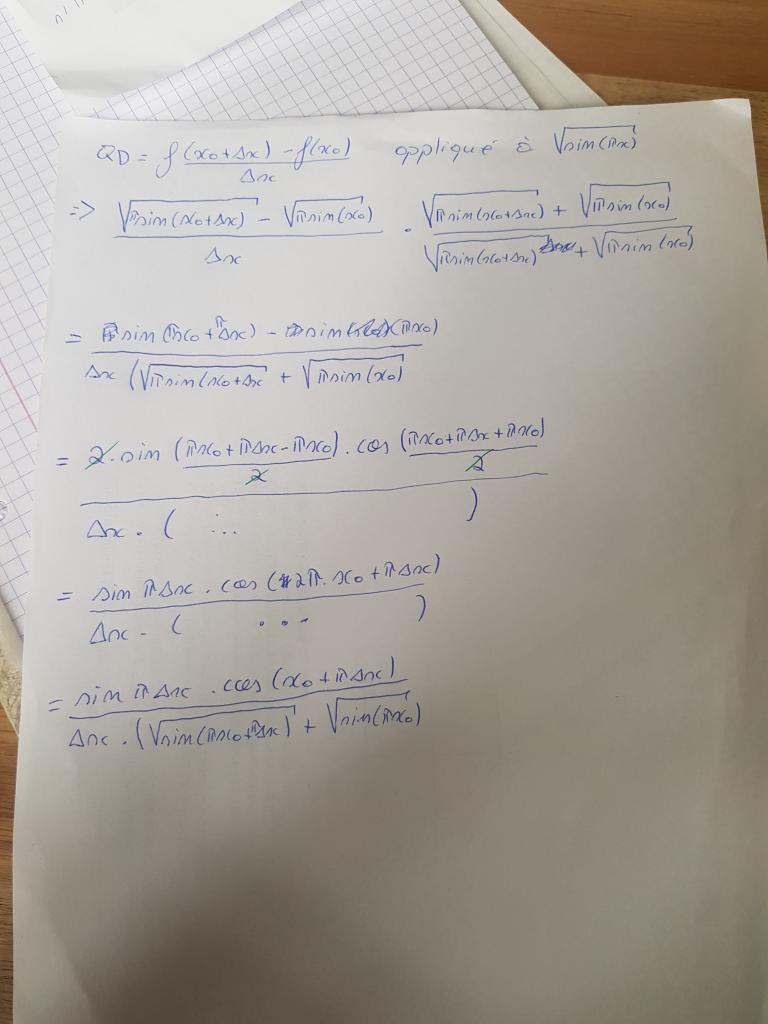 QD = f(x₀+Δx) - f(x₀) / Δx appliqué à √sin(πx)
=> √πsin(x₀+Δx) - √πsin(x₀) / Δx · √πsin(x₀+Δx) + √πsin(x₀) / √πsin(x₀+Δx) + √πsin(x₀)
= sin(πx₀+πΔx) - sin(πx₀) / Δx (√πsin(x₀+Δx + √πsin(x₀)
= 2·sin (πx₀+πΔx-πx₀ / 2) · cos (πx₀+πΔx+πx₀ / 2) / Δx · ( ... )
= sin πΔx · cos (2π·x₀+πΔx) / Δx · ( ... )
= sin πΔx · cos (x₀+πΔx) / Δx · (√sin(πx₀+πΔx) + √sin(πx₀)